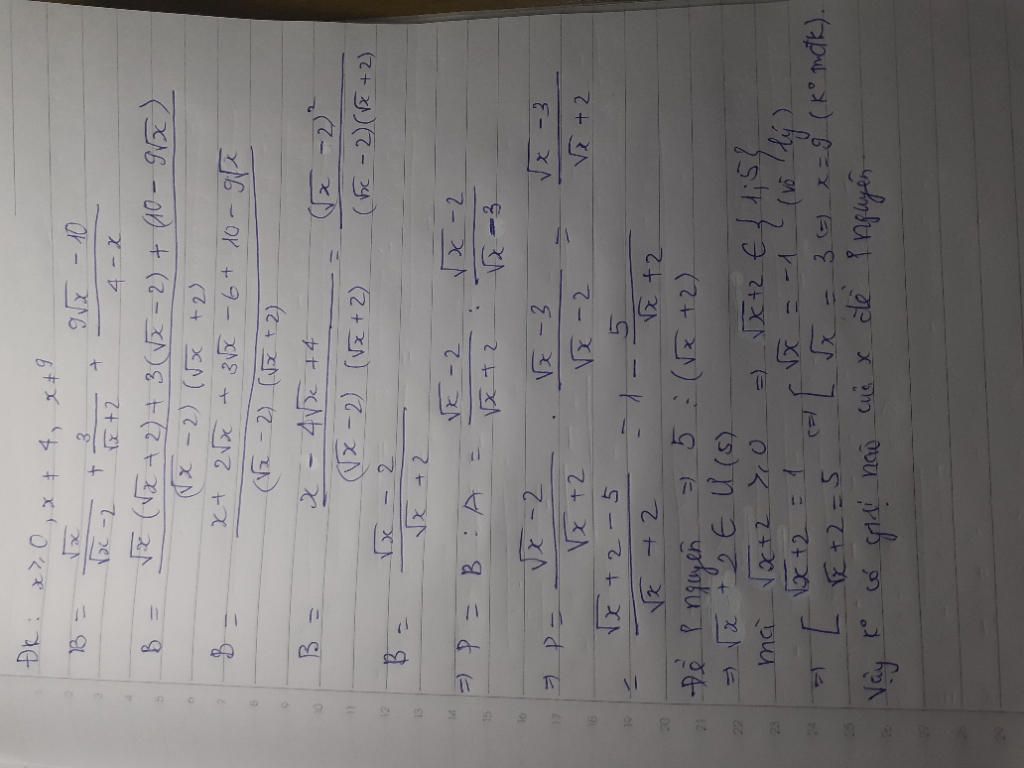 Đk: x ≥ 0, x ≠ 4, x ≠ 9
B = √x/(√x - 2) + 3/(√x + 2) + (9√x - 10)/(4 - x)
B = (√x(√x + 2) + 3(√x - 2) + (10 - 9√x))/((√x - 2)(√x + 2))
B = (x + 2√x + 3√x - 6 + 10 - 9√x)/((√x - 2)(√x + 2))
B = (x - 4√x + 4)/((√x - 2)(√x + 2)) = (√x - 2)²/((√x - 2)(√x + 2))
B = (√x - 2)/(√x + 2)
⇒ P = B : A = (√x - 2)/(√x + 2) : (√x - 2)/(√x - 3)
⇒ P = (√x - 2)/(√x + 2) . (√x - 3)/(√x - 2) = (√x - 3)/(√x + 2)
= (√x + 2 - 5)/(√x + 2) = 1 - 5/(√x + 2)
Để P nguyên ⇒ 5 ⋮ (√x + 2)
⇒ √x + 2 ∈ Ư(5)
mà √x + 2 ≥ 0 ⇒ √x + 2 ∈ {1; 5}
⇒ [ √x + 2 = 1 ⇔ [ √x = -1 (vô lý)
√x + 2 = 5 √x = 3 ⇔ x = 9 (k° mđk).
Vậy k° có giá trị nào của x để P nguyên.